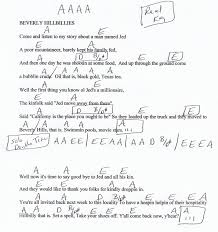 A A A A
Real Key
BEVERLY HILLBILLIES
A E E A
Come and listen to my story about a man named Jed
A
A poor mountaineer, barely kept his family fed,
A D
And then one day he was shootin at some food, And up through the ground come
A E A
a bubblin crude. Oil that is, black gold, Texas tea.
A E
Well the first thing you know ol Jed's a millionaire,
E A
The kinfolk said "Jed move away from there"
A D
Said "Californy is the place you ought to be" So they loaded up the truck and moved to
A E A
Beverly. Hills, that is. Swimmin pools, movie stars.
A A E E / E E A A / A A D D / E E E A
A E E A
Well now it's time to say good bye to Jed and all his kin.
A E E A
And they would like to thank you folks fer kindly droppin in.
A D
You're all invited back next week to this locality To have a heapin helpin of their hospitality
A E A
Hillbilly that is. Set a spell, Take your shoes off. Y'all come back now, y'hear?